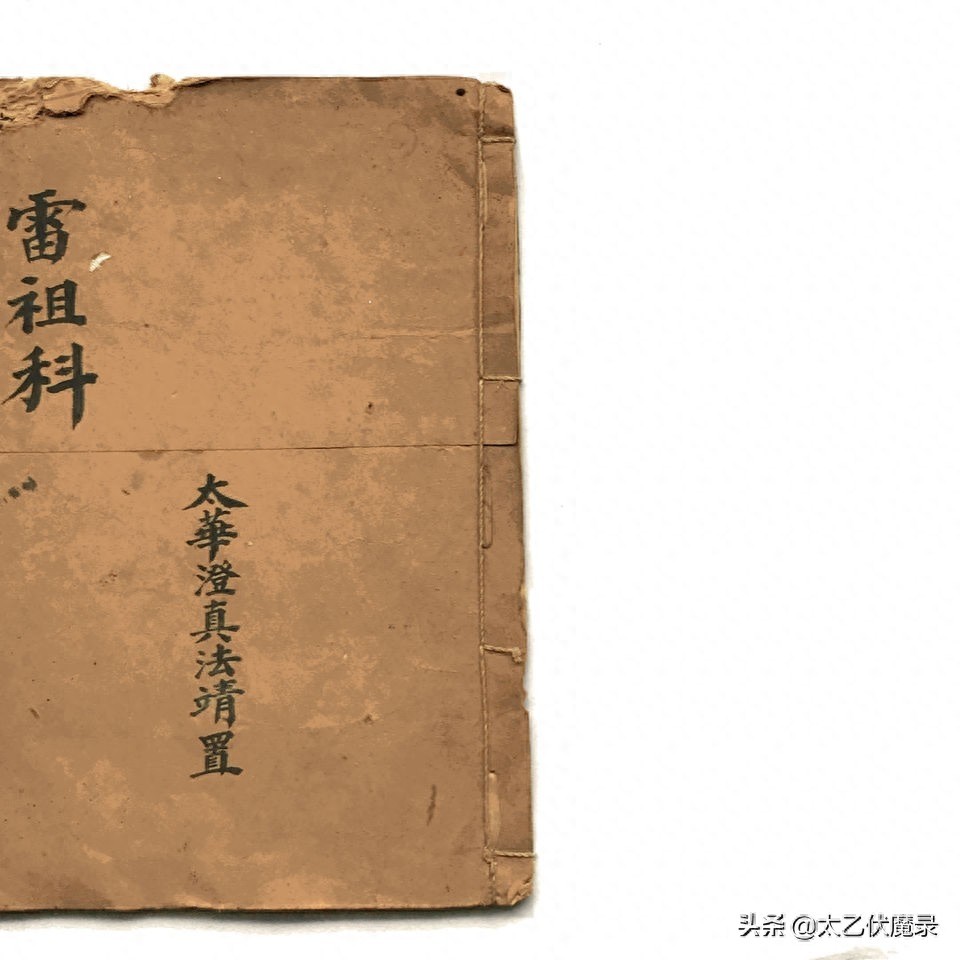 雷祖科
太華澄真法靖置
头条 @太乙伏魔录